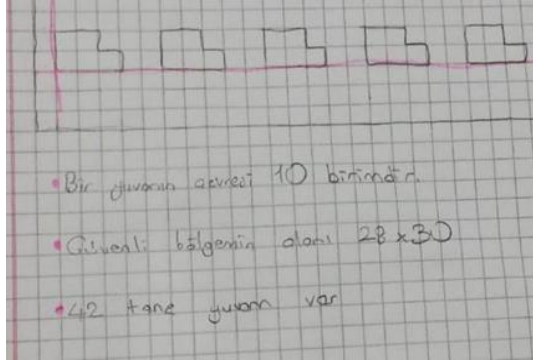 • Bir yuvanın çevresi 10 birimdir.
• Güvenli bölgenin alanı 28x30
• 42 tane yuvam var